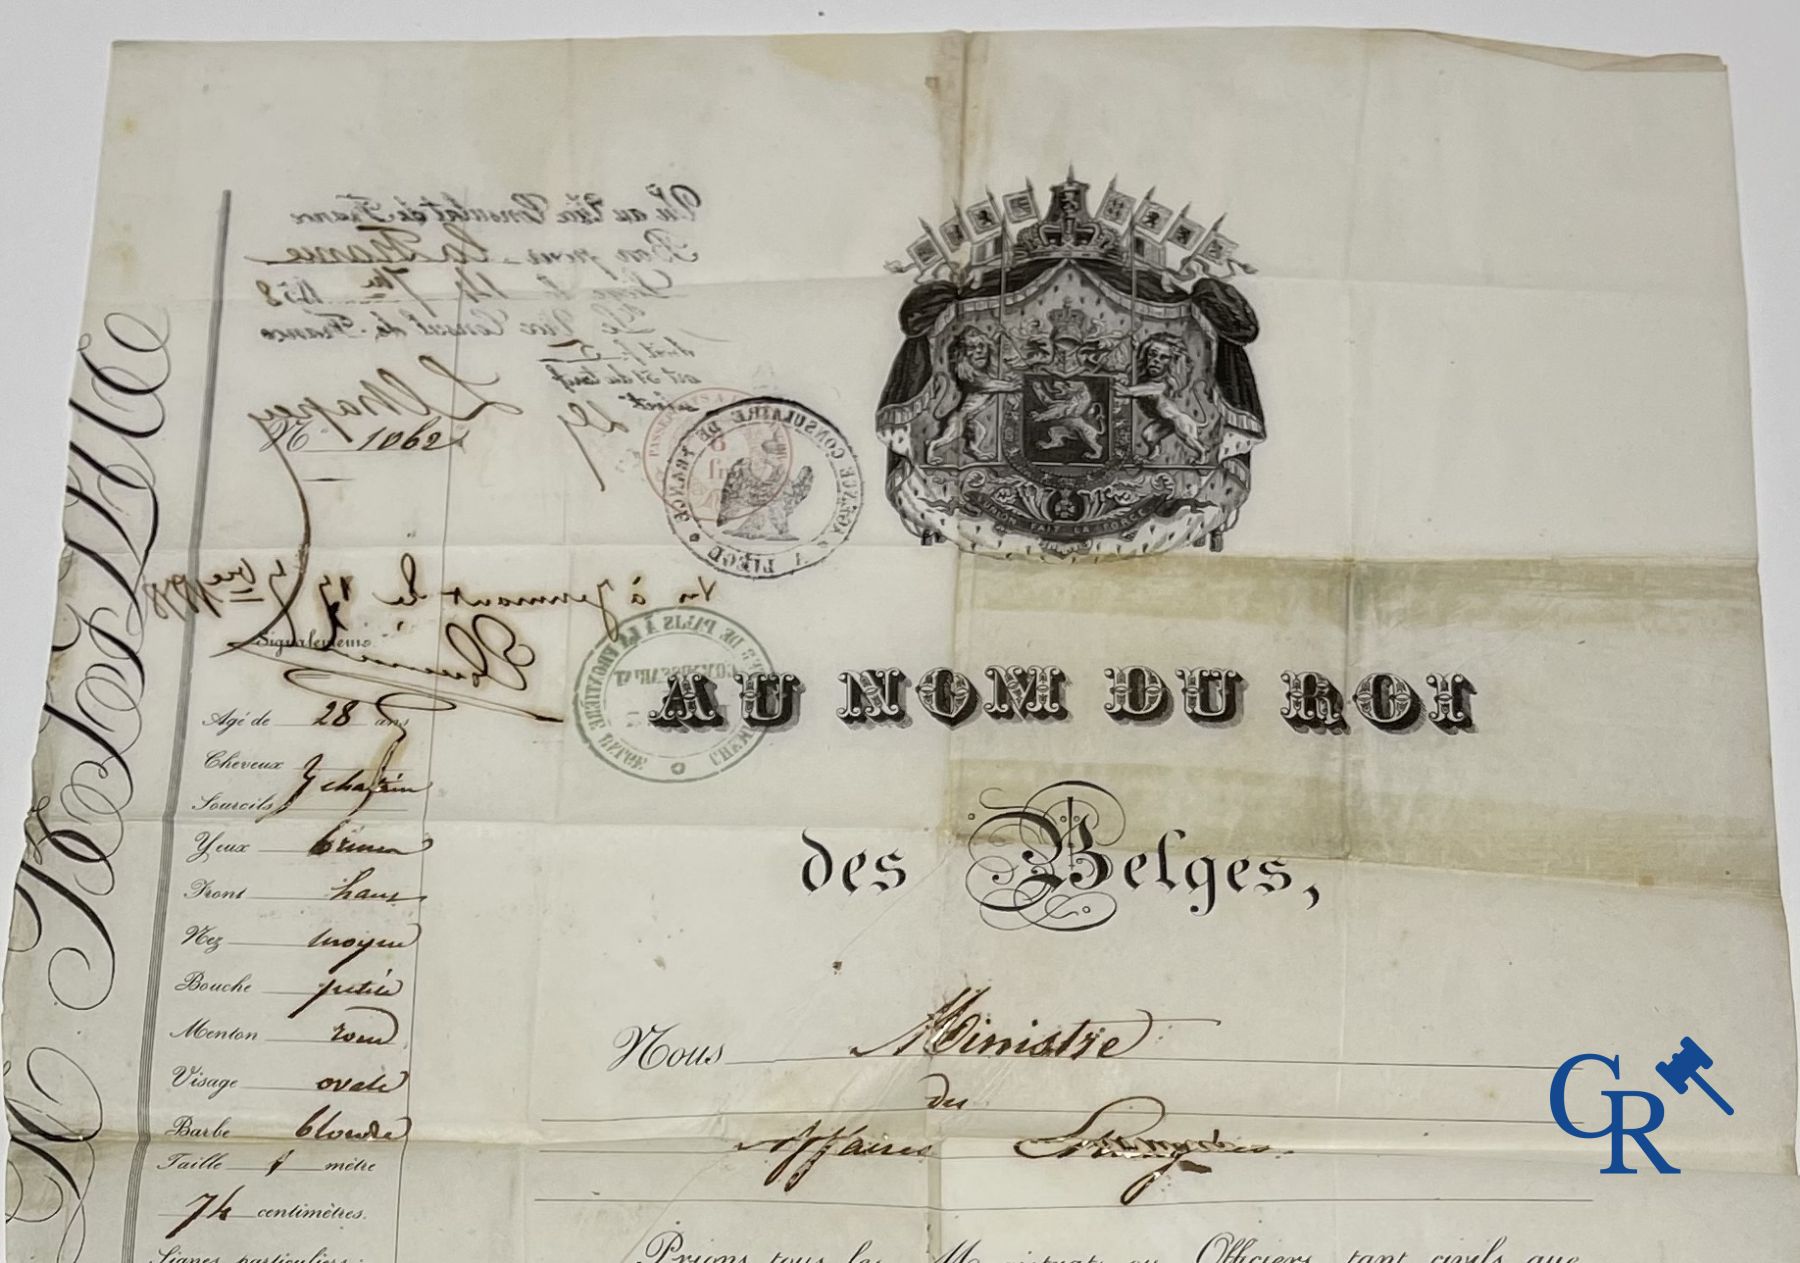 Vu au Vice Consulat de France
Bon pour la France
Liége le 14 7bre 1858
Le Vice Consul de France
AGENCE CONSULAIRE DE FRANCE A LIÉGE
N° 1062
Vu à Jeumont le
COMMISSARIAT DE POLICE
L'UNION FAIT LA FORCE
Signalement.
Agé de 28 ans
Cheveux
Sourcils } chatain
Yeux bruns
Front haut
Nez moyen
Bouche petite
Menton rond
Visage ovale
Barbe blonde
Taille 1 mètre
74 centimètres.
Signes particuliers:
AU NOM DU ROI
des Belges,
Nous Ministre
des
Affaires Etrangères.
Prions tous les Magistrats ou Officiers, tant civils que
BELGIQUE
CR